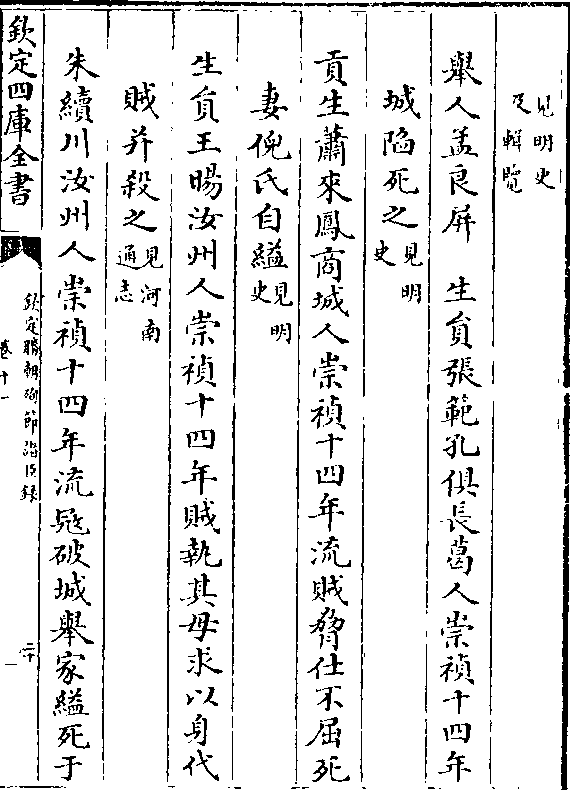 見明史
及輯覽
舉人孟良屏　生負張範孔俱長葛人崇禎十四年
城陷死之見明
史
貢生蕭來鳳商城人崇禎十四年流賊脅仕不屈死
妻倪氏自縊見明
史
生負王暘汝州人崇禎十四年賊執其母求以身代
賊并殺之見河南
通志
朱續川汝州人崇禎十四年流冦破城舉家縊死于
欽定四庫全書
欽定勝朝殉節諸臣錄
卷十一
二十